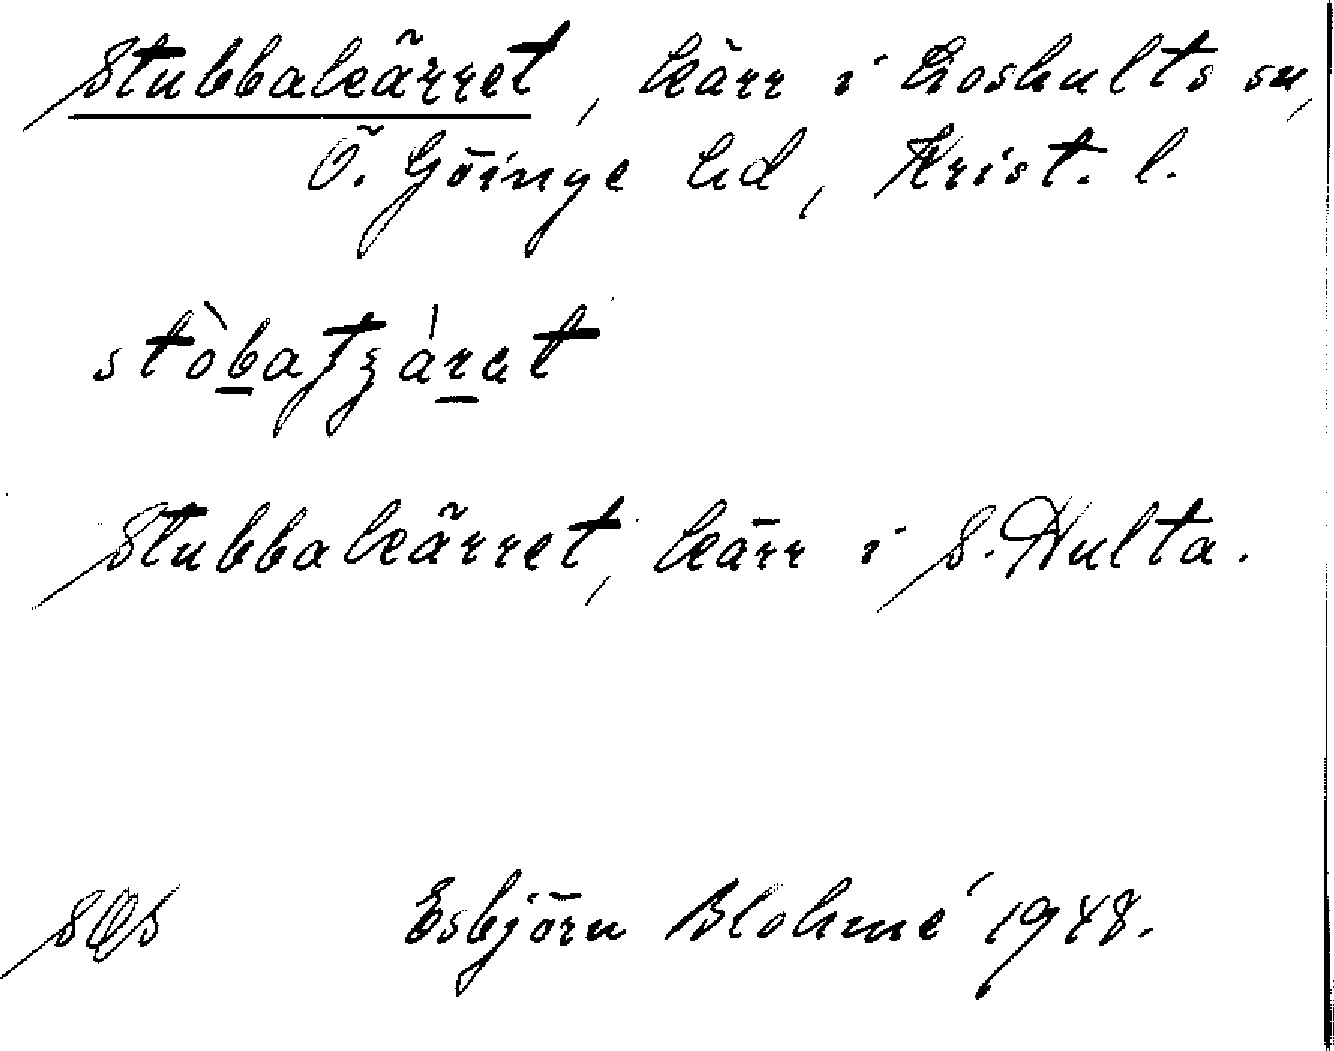 Stubbakärret, kärr i Loshults sn,
Ö. Göinge hd, Krist. l.
Stubbakärret, kärr i S. Hulta.
SOS Esbjörn Blohmé 1948.